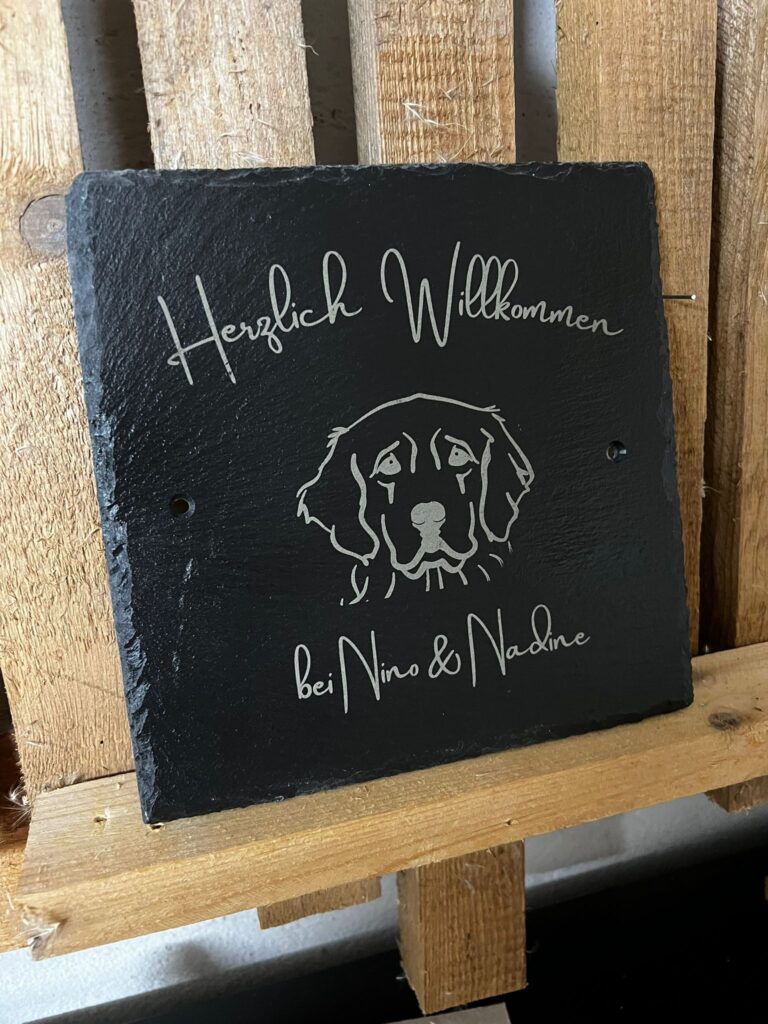 Herzlich Willkommen
bei Nino & Nadine